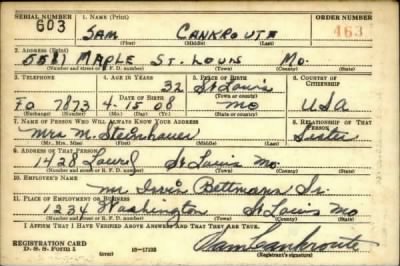 SERIAL NUMBER 1. NAME (Print) ORDER NUMBER
603 SAM CANKROUTE 463
(First) (Middle) (Last)
2. ADDRESS (Print)
5581 MAPLE ST. LOUIS MO.
(Number and street or R. F. D. number) (Town) (County) (State)
3. TELEPHONE 4. AGE IN YEARS 5. PLACE OF BIRTH 6. COUNTRY OF CITIZENSHIP
32 St Louis
DATE OF BIRTH (Town or county)
FO 7873 4-15-08 MO USA
(Exchange) (Number) (Mo.) (Day) (Yr.) (State or country)
7. NAME OF PERSON WHO WILL ALWAYS KNOW YOUR ADDRESS 8. RELATIONSHIP OF THAT PERSON
Mrs M. Steinhauer Sister
(Mr., Mrs., Miss) (First) (Middle) (Last)
9. ADDRESS OF THAT PERSON
1428 Laurel St Louis Mo.
(Number and street or R. F. D. number) (Town) (County) (State)
10. EMPLOYER'S NAME
Mr Irvin Bettmann Sr.
11. PLACE OF EMPLOYMENT OR BUSINESS
1234 Washington St Louis Mo
(Number and street or R. F. D. number) (Town) (County) (State)
I AFFIRM THAT I HAVE VERIFIED ABOVE ANSWERS AND THAT THEY ARE TRUE.
REGISTRATION CARD
D. S. S. Form 1 16-17105 Sam Cankroute
(Registrant's signature)